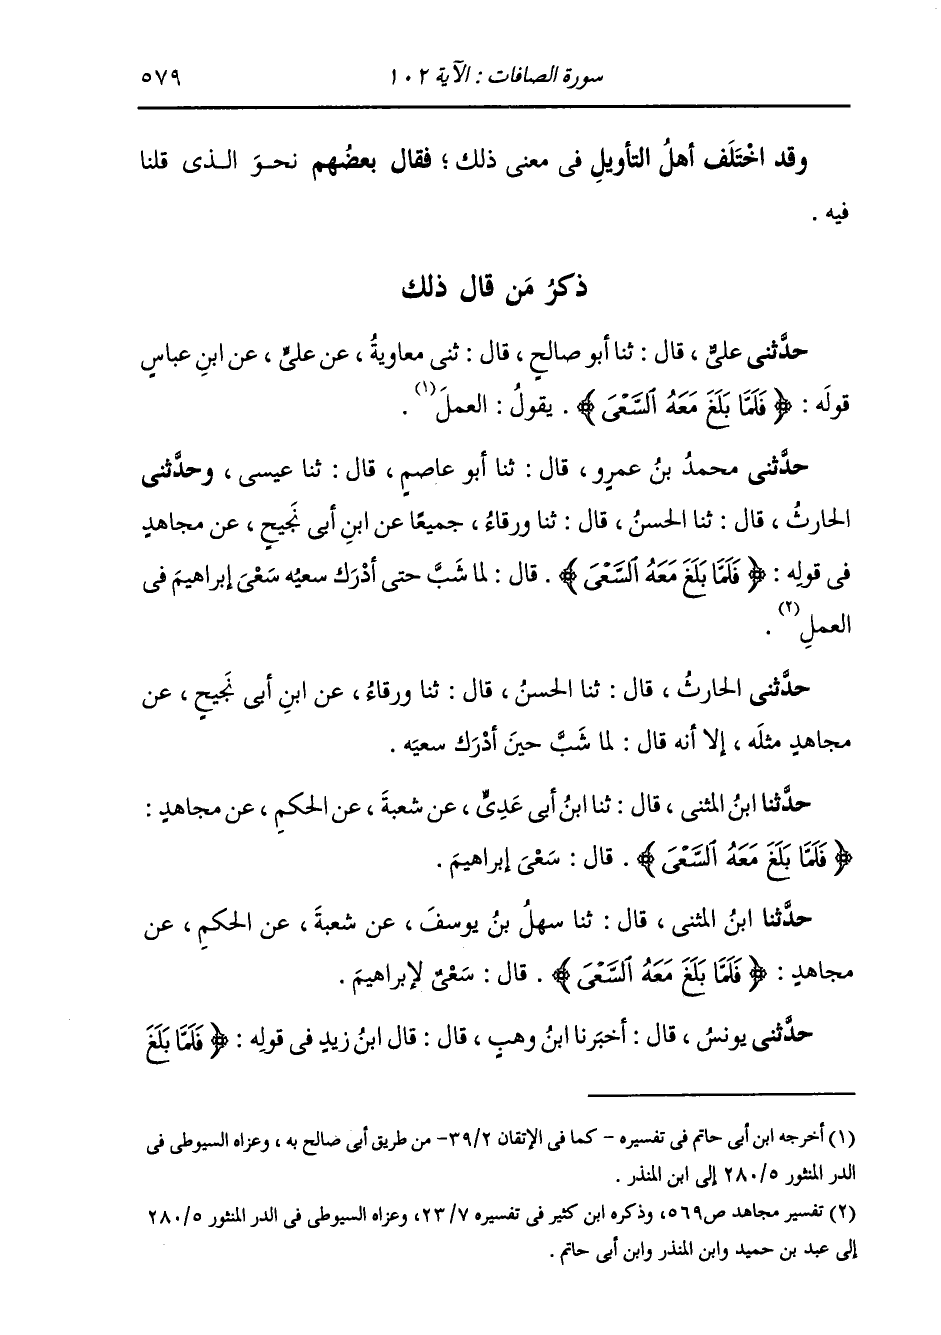 سورة الصافات : الآية ١٠٢ ٥٧٩
وقد اخْتَلَف أهلُ التأويلِ فى معنى ذلك ؛ فقال بعضُهم نحوَ الذى قلنا
فيه .
ذكرُ مَن قال ذلك
حدَّثنى علىٌّ ، قال : ثنا أبو صالحٍ ، قال : ثنى معاويةُ ، عن علىٍّ ، عن ابنِ عباسٍ
قولَه : ﴿ فَلَمَّا بَلَغَ مَعَهُ ٱلسَّعْىَ ﴾ . يقولُ : العملَ(١) .
حدَّثنى محمدُ بنُ عمرٍو ، قال : ثنا أبو عاصمٍ ، قال : ثنا عيسى ، وحدَّثنى
الحارثُ ، قال : ثنا الحسنُ ، قال : ثنا ورقاءُ ، جميعًا عن ابنِ أبى نَجيحٍ ، عن مجاهدٍ
فى قولِه : ﴿ فَلَمَّا بَلَغَ مَعَهُ ٱلسَّعْىَ ﴾ . قال : لما شَبَّ حتى أدْرَك سعيُه سَعْىَ إبراهيمَ فى
العملِ(٢) .
حدَّثنى الحارثُ ، قال : ثنا الحسنُ ، قال : ثنا ورقاءُ ، عن ابنِ أبى نَجيحٍ ، عن
مجاهدٍ مثلَه ، إلا أنه قال : لما شَبَّ حينَ أدْرَك سعيَه .
حدَّثنا ابنُ المثنى ، قال : ثنا ابنُ أبى عَدِىٍّ ، عن شعبةَ ، عن الحكمِ ، عن مجاهدٍ :
﴿ فَلَمَّا بَلَغَ مَعَهُ ٱلسَّعْىَ ﴾ . قال : سَعْىَ إبراهيمَ .
حدَّثنا ابنُ المثنى ، قال : ثنا سهلُ بنُ يوسفَ ، عن شعبةَ ، عن الحكمِ ، عن
مجاهدٍ : ﴿ فَلَمَّا بَلَغَ مَعَهُ ٱلسَّعْىَ ﴾ . قال : سَعْىٌ لإبراهيمَ .
حدَّثنى يونسُ ، قال : أخبَرنا ابنُ وهبٍ ، قال : قال ابنُ زيدٍ فى قولِه : ﴿ فَلَمَّا بَلَغَ
(١) أخرجه ابن أبى حاتم فى تفسيره - كما فى الإتقان ٣٩/٢- من طريق أبى صالح به ، وعزاه السيوطى فى
الدر المنثور ٢٨٠/٥ إلى ابن المنذر .
(٢) تفسير مجاهد ص٥٦٩، وذكره ابن كثير فى تفسيره ٢٣/٧، وعزاه السيوطى فى الدر المنثور ٢٨٠/٥
إلى عبد بن حميد وابن المنذر وابن أبى حاتم .